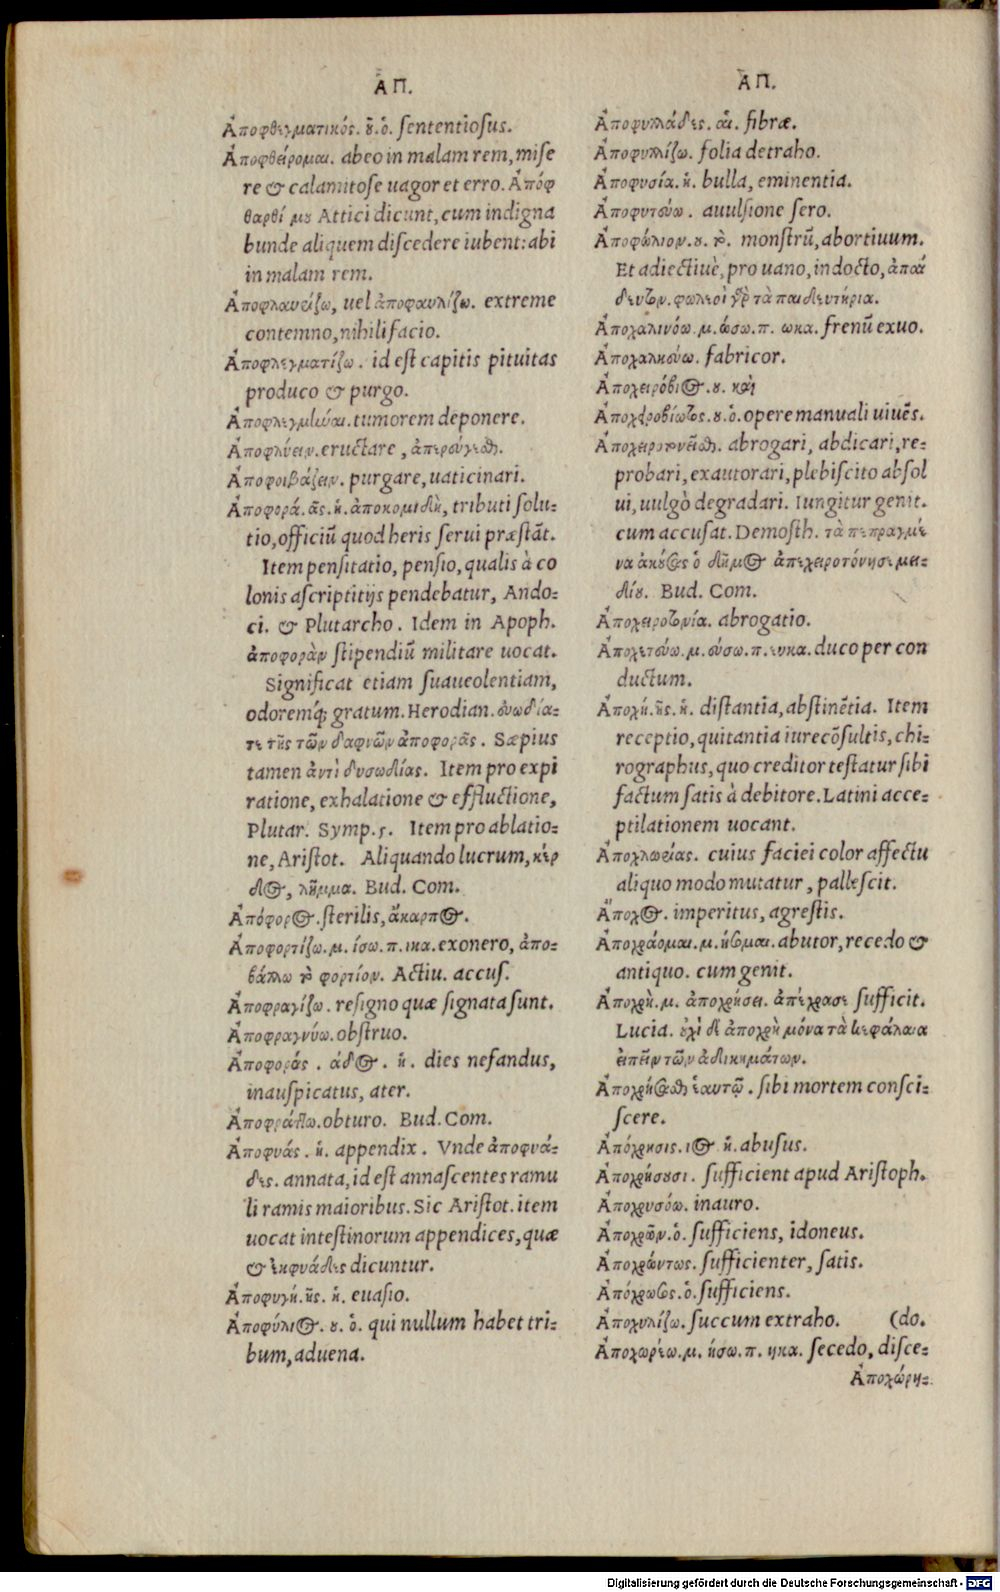 ἈΠ.
Ἀποφθεγματικός. οῦ. ὁ. sententiosus.
Ἀποφθείρομαι. abeo in malam rem, mise
re & calamitose uagor et erro. Ἀπόφ
θαρθί μου Attici dicunt, cum indigna
bunde aliquem discedere iubent: abi
in malam rem.
Ἀποφλαυρίζω, uel ἀποφαυλίζω. extreme
contemno, nihili facio.
Ἀποφλεγματίζω. id est capitis pituitas
produco & purgo.
Ἀποφλεγμῆναι. tumorem deponere.
Ἀποφλύειν. eructare, ἀπερεύγεσθαι.
Ἀποφοιβάζειν. purgare, uaticinari.
Ἀποφορά. ᾶς. ἡ. ἀποκομιδὴ, tributi solu-
tio, officiū quod heris serui præstāt.
Item pensitatio, pensio, qualis à co
lonis ascriptitijs pendebatur, Ando-
ci. & Plutarcho. Idem in Apoph.
ἀποφορὰν stipendiū militare uocat.
Significat etiam suaueolentiam,
odoremq́; gratum. Herodian. εὐωδία-
τε τῆς τῶν δαφνῶν ἀποφορᾶς. Sæpius
tamen ἀντὶ δυσωδίας. Item pro expi
ratione, exhalatione & effluctione,
Plutar. Symp. ς. Item pro ablatio-
ne, Aristot. Aliquando lucrum, κέρ
δος, λῆμμα. Bud. Com.
Ἀπόφορος. sterilis, ἄκαρπος.
Ἀποφορτίζω. μ. ίσω. π. ικα. exonero, ἀπο-
βάλλω τὸ φορτίον. Actiu. accus.
Ἀποφραγίζω. resigno quæ signata sunt.
Ἀποφραγνύω. obstruo.
Ἀποφράς. άδος. ἡ. dies nefandus,
inauspicatus, ater.
Ἀποφράττω. obturo. Bud. Com.
Ἀποφυάς. ἡ. appendix. Vnde ἀποφυά-
δες. annata, id est annascentes ramu
li ramis maioribus. Sic Aristot. item
uocat intestinorum appendices, quæ
& ἐκφυάδες dicuntur.
Ἀποφυγή. ῆς. ἡ. euasio.
Ἀποφύλιος. ου. ὁ. qui nullum habet tri-
bum, aduena.
ἈΠ.
Ἀποφυλλάδες. αἱ. fibræ.
Ἀποφυλλίζω. folia detraho.
Ἀποφυσία. ἡ. bulla, eminentia.
Ἀποφυτεύω. auulsione sero.
Ἀποφώλιον. ου. τὸ. monstrū, abortiuum.
Et adiectiuè, pro uano, indocto, ἀπαί
δευτον. φωλεοὶ γὰρ τὰ παιδευτήρια.
Ἀποχαλινόω. μ. ώσω. π. ωκα. frenū exuo.
Ἀποχαλκεύω. fabricor.
Ἀποχειρόβιος. ου. καὶ
Ἀποχειροβίωτος. ου. ὁ. opere manuali uiuēs.
Ἀποχειροτονεῖσθαι. abrogari, abdicari, re-
probari, exautorari, plebiscito absol
ui, uulgò degradari. Iungitur genit.
cum accusat. Demosth. τὰ πεπραγμέ
να ἀκούσας ὁ δῆμος ἀπεχειροτόνησε μει-
δίου. Bud. Com.
Ἀποχειροτονία. abrogatio.
Ἀποχετεύω. μ. εύσω. π. ευκα. duco per con
ductum.
Ἀποχή. ῆς. ἡ. distantia, abstinētia. Item
receptio, quitantia iurecōsultis, chi-
rographus, quo creditor testatur sibi
factum satis à debitore. Latini acce-
ptilationem uocant.
Ἀποχλωείας. cuius faciei color affectu
aliquo modo mutatur, pallescit.
Ἄποχος. imperitus, agrestis.
Ἀποχράομαι. μ. ήσομαι. abutor, recedo &
antiquo. cum genit.
Ἀποχρὴ. μ. ἀποχρήσει. ἀπέχρασε sufficit.
Lucia. οὐχὶ δὲ ἀποχρὴ μόνα τὰ κεφάλαια
εἰπεῖν τῶν ἀδικημάτων.
Ἀποχρήσασθαι ἑαυτῷ. sibi mortem consci-
scere.
Ἀπόχρησις. ιος ἡ. abusus.
Ἀποχρήσουσι. sufficient apud Aristoph.
Ἀποχρυσόω. inauro.
Ἀποχρῶν. ὁ. sufficiens, idoneus.
Ἀποχρώντως. sufficienter, satis.
Ἀπόχρωτος. ὁ. sufficiens.
Ἀποχυλίζω. succum extraho. (do.
Ἀποχωρέω. μ. ήσω. π. ηκα. secedo, disce-
Ἀποχώρη-
Digitalisierung gefördert durch die Deutsche Forschungsgemeinschaft - DFG